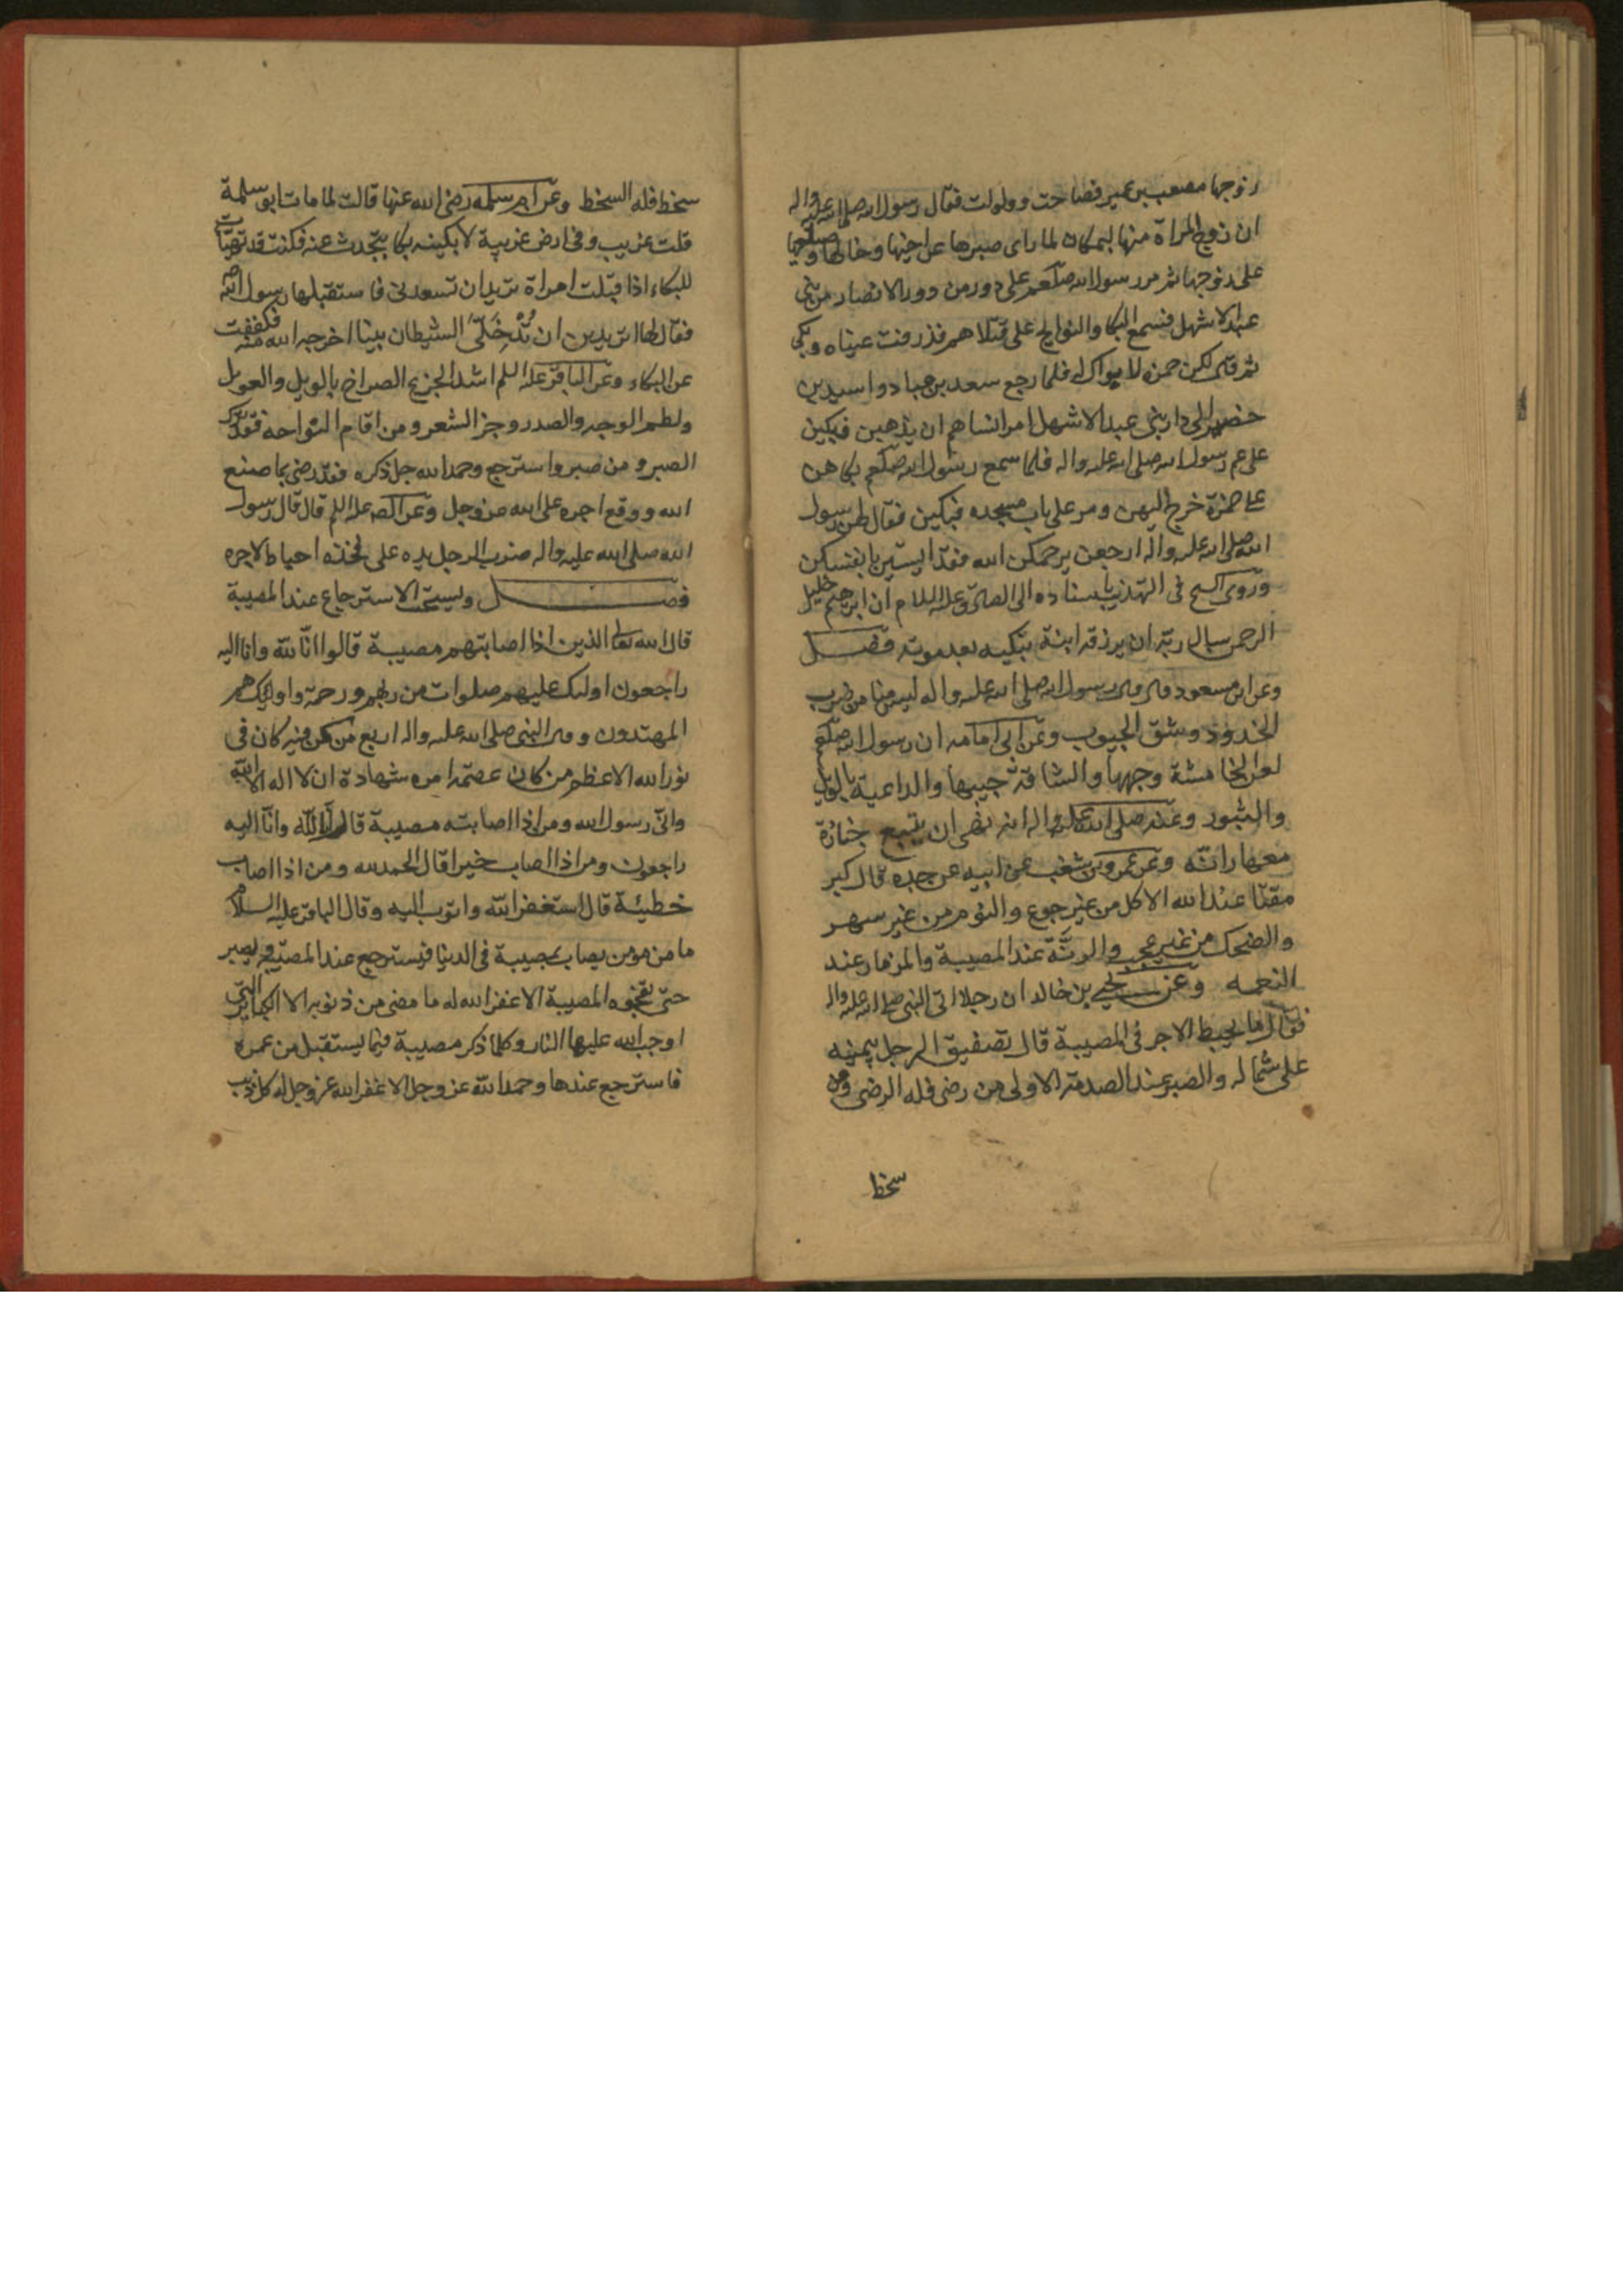 زوجها مصعب بن عمير فصاحت وولولت فقال رسول الله صلى الله عليه واله
ان زوج المراة منها لبمكان لما راى صبرها عن اخيها وخالها وصياحها
على زوجها ثم مر رسول الله صلعم على دور من دور الانصار من بنى
عبد الاشهل فسمع البكا والنوايح على قتلاهم فذرفت عيناه وبكى
ثم قال لكن حمزة لا بواكى له فلما رجع سعد بن عباد واسيد بن
حضير الى دار بنى عبد الاشهل امر انساهم ان يذهبن فيبكين
على عم رسول الله صلى الله عليه واله فلما سمع رسول الله صلعم بكاهن
على حمزة خرج اليهن ومر على باب مسجده فبكين فقال لهن رسول
الله صلى الله عليه واله ارجعن يرحمكن الله فقد اسيتن بانفسكن
وروى الشيخ فى التهذيب باسناده الى الصادق عليه السلام ان ابرهيم خليل
الرحمن سال ربه ان يرزقه ابنة تبكيه بعد موته فصل
وعن ابن مسعود قال قال رسول الله صلى الله عليه واله ليس منا من ضرب
الخدود وشق الجيوب وعن ابى امامه ان رسول الله صلعم
لعن الخامشة وجهها والشاقة جيبها والداعية بالويل
والثبور وعنه صلى الله عليه واله انه نهى ان يتبع جنازة
معها رانة وعن عمرو بن شعيب عن ابيه عن جده قال كبر
مقتا عند الله الاكل من غير جوع والنوم من غير سهر
والضحك من غير عجب والرنّة عند المصيبة والمزمار عند
النعمه وعن يحيى بن خالد ان رجلا اتى النبى صلى الله عليه واله
فقال ما يحبط الاجر فى المصيبة قال تصفيق الرجل بيمينه
على شماله والصبر عند الصدمة الاولى من رضى فله الرضى ومن
سخط
سخط فله السخط وعن ام سلمه رضى الله عنها قالت لما مات ابو سلمة
قلت غريب وفى ارض غريبة لابكينه بكا يتحدث عنه فكنت قد تهيات
للبكاء اذا قبلت امراة تريد ان تسعدنى فاستقبلها رسول الله
فقال لها اتريدين ان تُدْخِلى الشيطان بيتا اخرجه الله منه فكففت
عن البكاء وعن الباقر عليه السلم اشد الجزع الصراخ بالويل والعويل
ولطم الوجه والصدر وجز الشعر ومن اقام النواحة فقد ترك
الصبر ومن صبر واسترجع وحمد الله جل ذكره فقد رضى بما صنع
الله ووقع اجره على الله عز وجل وعن الصادق عليه السلم قال قال رسول
الله صلى الله عليه واله ضرب الرجل يده على فخذه احباط لاجره
فصل ويستحب الاسترجاع عند المصيبة
قال الله تعالى الذين اذا اصابتهم مصيبة قالوا انّا لله وانا اليه
راجعون اوليك عليهم صلوات من ربهم ورحمة واوليك هم
المهتدون وقال النبى صلى الله عليه واله اربع من كن فيه كان فى
نور الله الاعظم من كان عصمة امره شهادة ان لا اله الا الله
وانّى رسول الله ومن اذا اصابته مصيبة قال انا لله وانّا اليه
راجعون ومن اذا اصاب خيرا قال الحمد لله ومن اذا اصاب
خطيئة قال استغفر الله واتوب اليه وقال الباقر عليه السلام
ما من مومن يصاب بمصيبة فى الدنيا فيسترجع عند المصيبة ويصبر
حتى تفجؤه المصيبة الا غفر الله له ما مضى من ذنوبه الا الكباير التى
اوجب الله عليها النار وكلما ذكر مصيبة فيما يستقبل من عمره
فاسترجع عندها وحمد الله عز وجل الا غفر الله عز وجل له كل ذنب